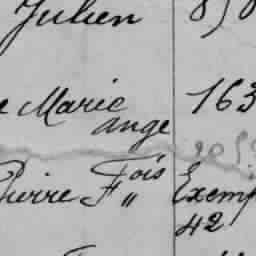 Julien 8
e Marie 163
ange
Pierre F^ois „ Exemp
42